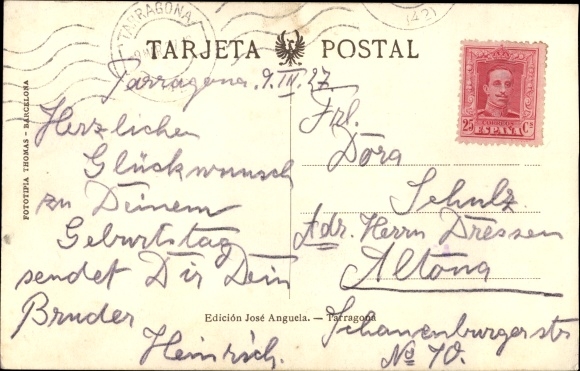 TARRAGONA
(42)
TARJETA POSTAL
Tarragona, 9.III.27
Herzlichen
Glückwunsch
zu Deinem
Geburtstag
sendet Dir Dein
Bruder
Heinrich.
Frl.
Dora
Schulz
Adr. Herrn Dressen
Altona
Schauenburgerstr
No 70.
25 Cs
ESPAÑA
FOTOTIPIA THOMAS - BARCELONA
Edición José Anguela. — Tarragona